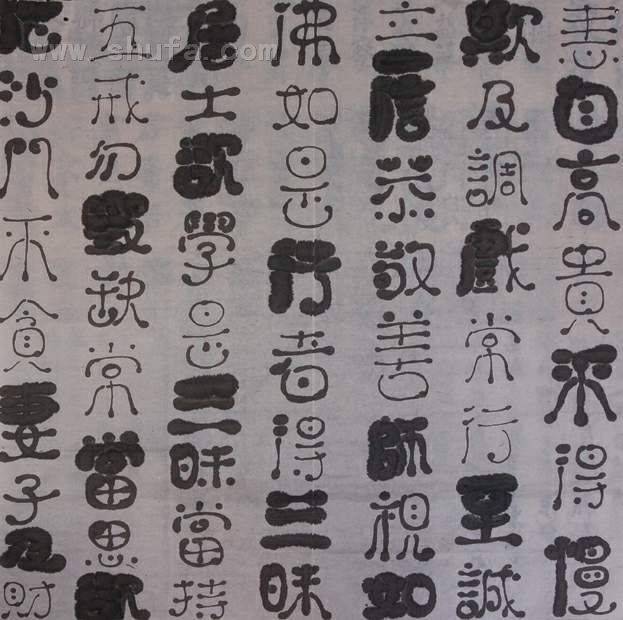 恚自高貴不得慢
欺及調戲常行至誠
立信恭敬善師視如
佛如是行者得三昧
居士欲學是三昧當持
五戒勿毀缺常當思欲
沙門不貪妻子及財
www.shufa.com